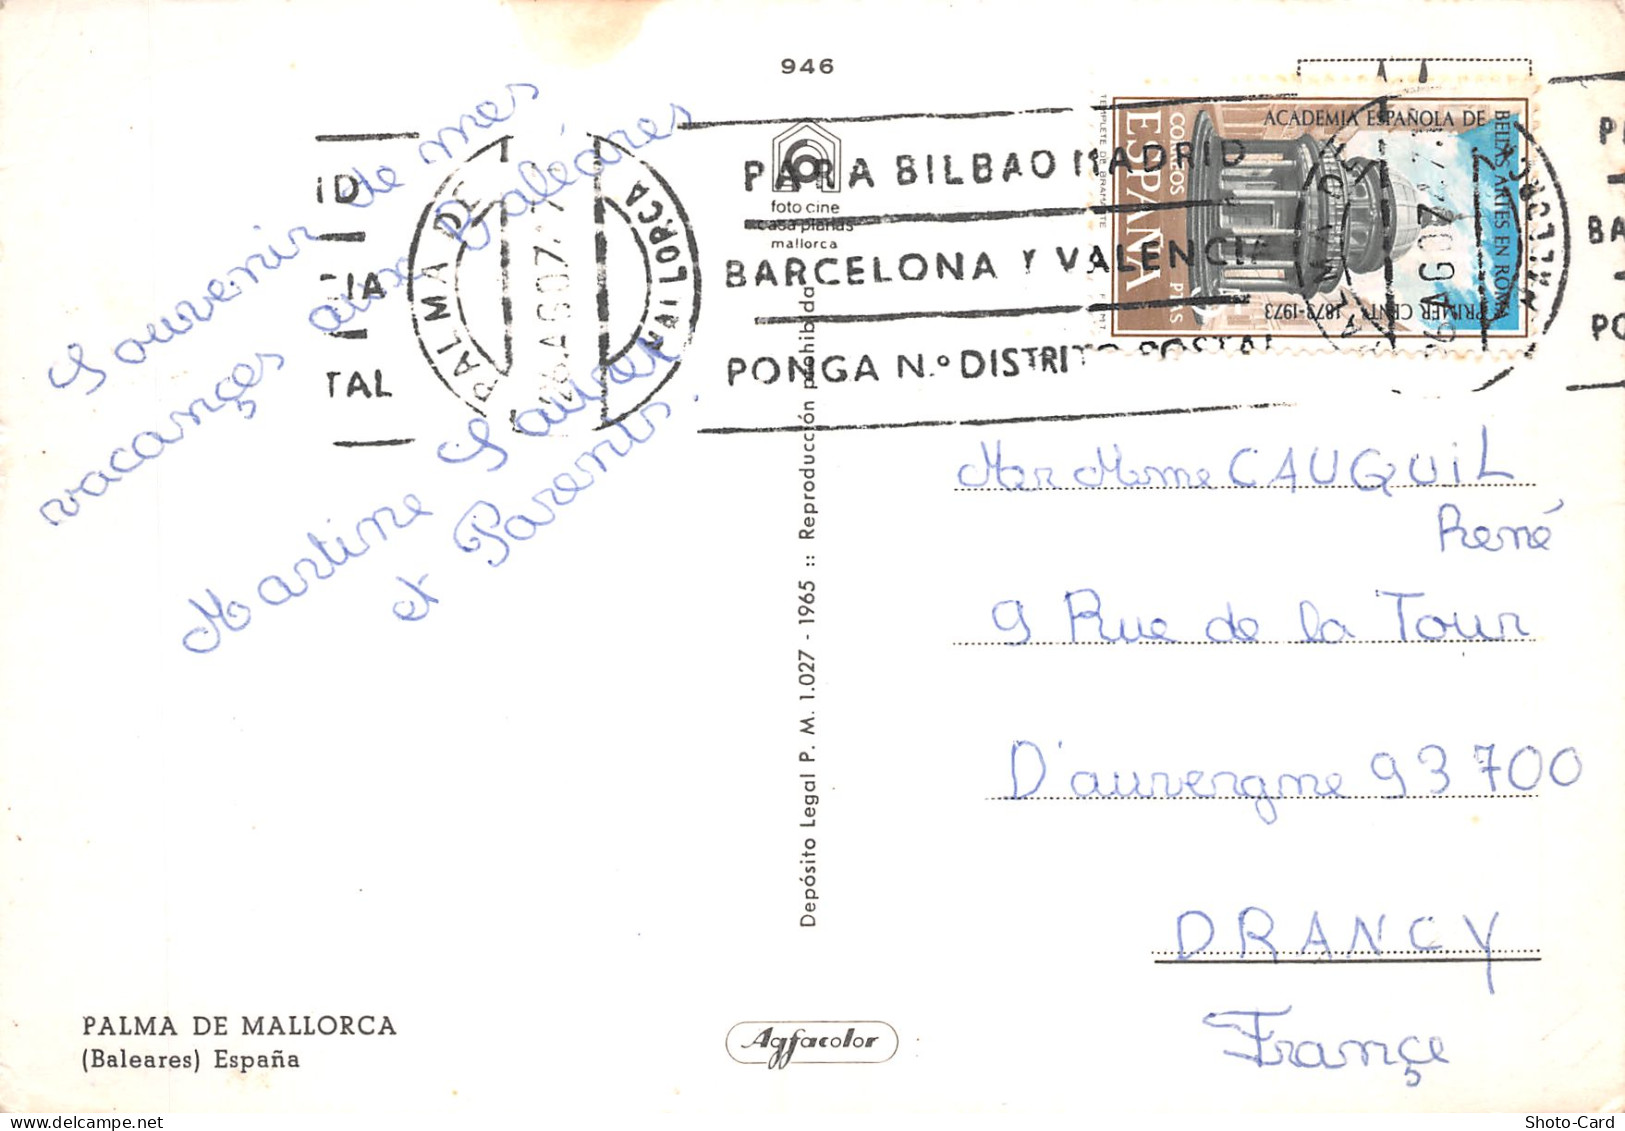 946
Souvenir de mes
vacançes aux Baléares
Martine Laurent
et Parents.
ID
IA
TAL
PALMA DE MALLORCA
PARA BILBAO MADRID
BARCELONA Y VALENCIA
PONGA N.º DISTRITO POSTAL
foto cine
casa planas
mallorca
ACADEMIA ESPAÑOLA DE
BELLAS ARTES EN ROMA
PRIMER CENT. 1873-1973
CORREOS
ESPAÑA
PTAS
TEMPLETE DE BRAMANTE
F.N.M.T.
P
BA
PO
Depósito Legal P. M. 1.027 - 1965 :: Reproducción prohibida
Mer Mme CAUQUIL
René
9 Rue de la Tour
D'auvergne 93700
DRANCY
Françe
PALMA DE MALLORCA
(Baleares) España
Agfacolor
Shoto-Card